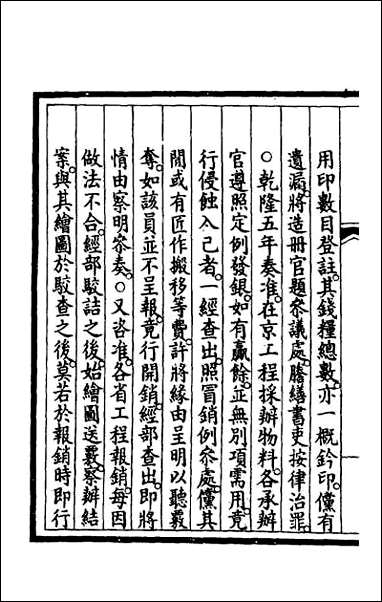 用印數目登註。其錢糧總數。亦一概鈐印。儻有
遺漏。將造冊官題叅議處。謄繕書吏按律治罪。
○乾隆五年奏准。在京工程採辦物料。各承辦
官遵照定例發銀。如有贏餘。並無別項需用。竟
行侵蝕入己者。一經查出。照冒銷例叅處。儻其
閒或有匠作搬移等費。許將緣由呈明以聽覈
奪。如該員並不呈報。竟行開銷。經部查出。卽將
情由察明叅奏。○又咨准。各省工程報銷。每因
做法不合。經部駮詰之後。始繪圖送覈。察辦結
案。與其繪圖於駮查之後。莫若於報銷時卽行